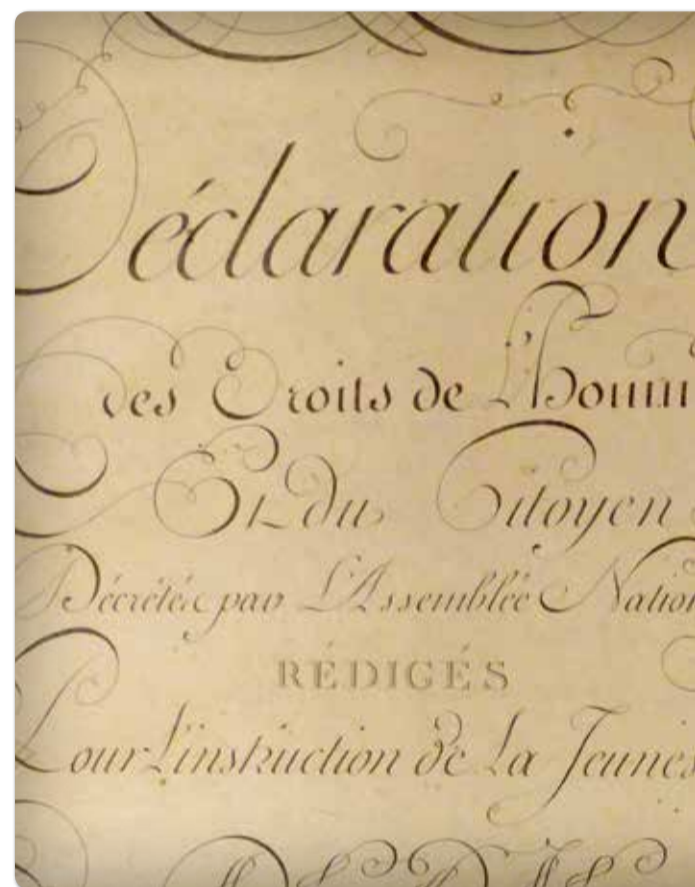 Déclaration
des Droits de L'Homm
Et du Citoyen
Décrétés par L'Assemblée Nation
RÉDIGÉS
Pour L'instruction de La Jeunes